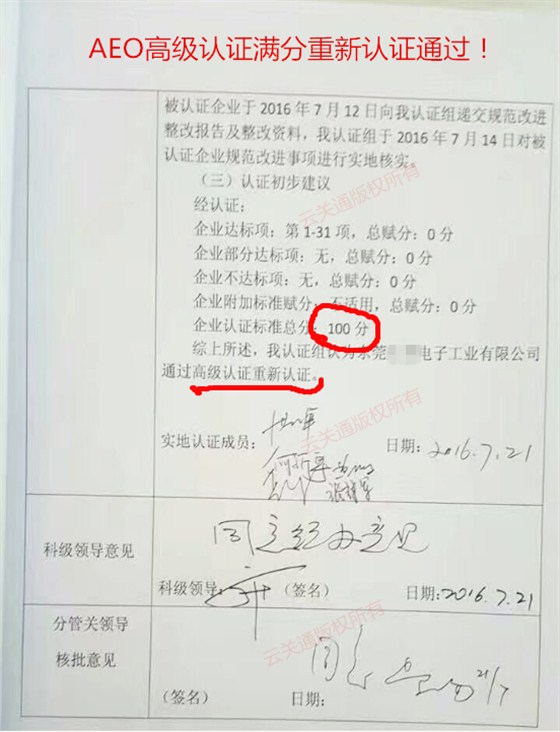 AEO高级认证满分重新认证通过！
被认证企业于2016年7月12日向我认证组递交规范改进
整改报告及整改资料，我认证组于2016年7月14日对被
认证企业规范改进事项进行实地核实。
（三）认证初步建议
云关通版权所有
经认证：
企业达标项：第1-31项，总赋分：0分
企业部分达标项：无，总赋分：0分
企业不达标项：无，总赋分：0分
企业附加标准赋分：不适用，总赋分：0分
企业认证标准总分：100分
综上所述，我认证组认为东莞 电子工业有限公司
通过高级认证重新认证。
云关通版权所有
实地认证成员： 日期：2016.7.21
科级领导意见
同意经办意见
科级领导： （签名） 日期：2016.7.21
云关通版权所有
分管关领导
核批意见
同意
21/7
（签名） 日期：